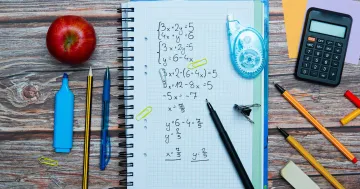 3x+2y=5
4x+y=6
3x+2y=5
y=6-4x
3x+2·(6-4x)=5
3x+12-8x=5
-5x=-7
x=7/5
y=6-4·7/5
y=2/5
x=7/5 y=2/5